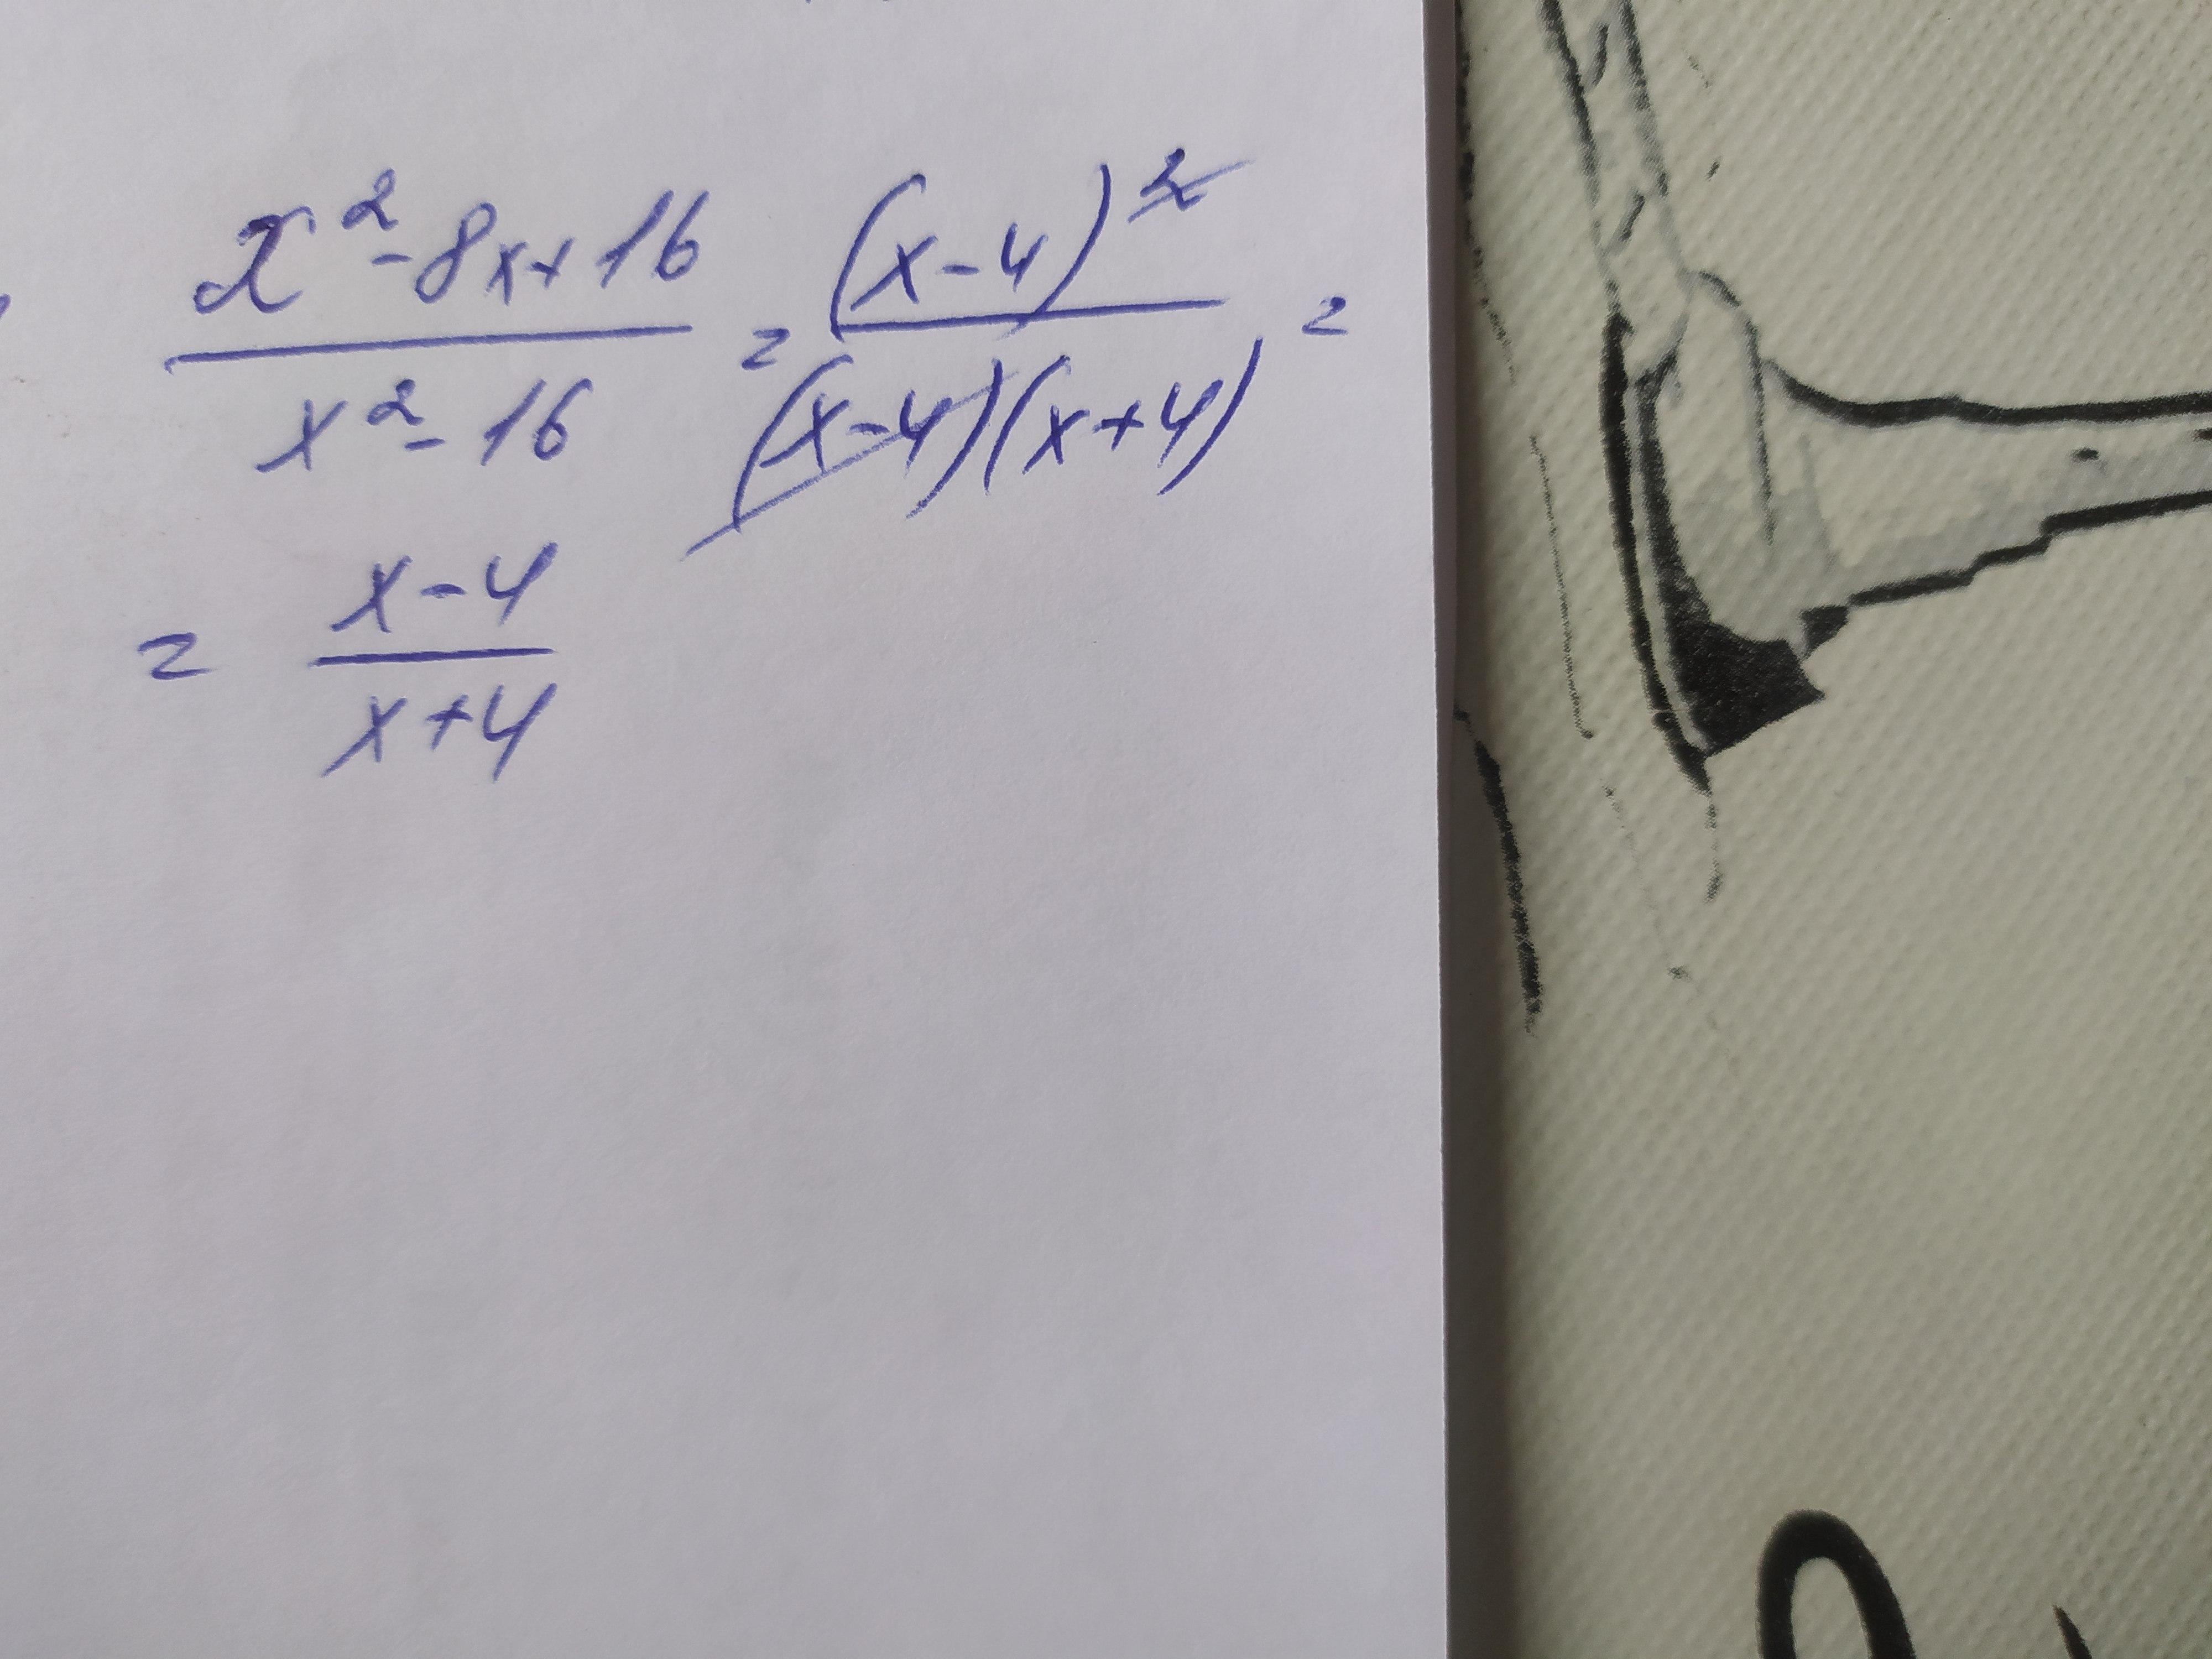 x² - 8x + 16 / x² - 16 = (x - 4)² / (x - 4)(x + 4) =
= x - 4 / x + 4